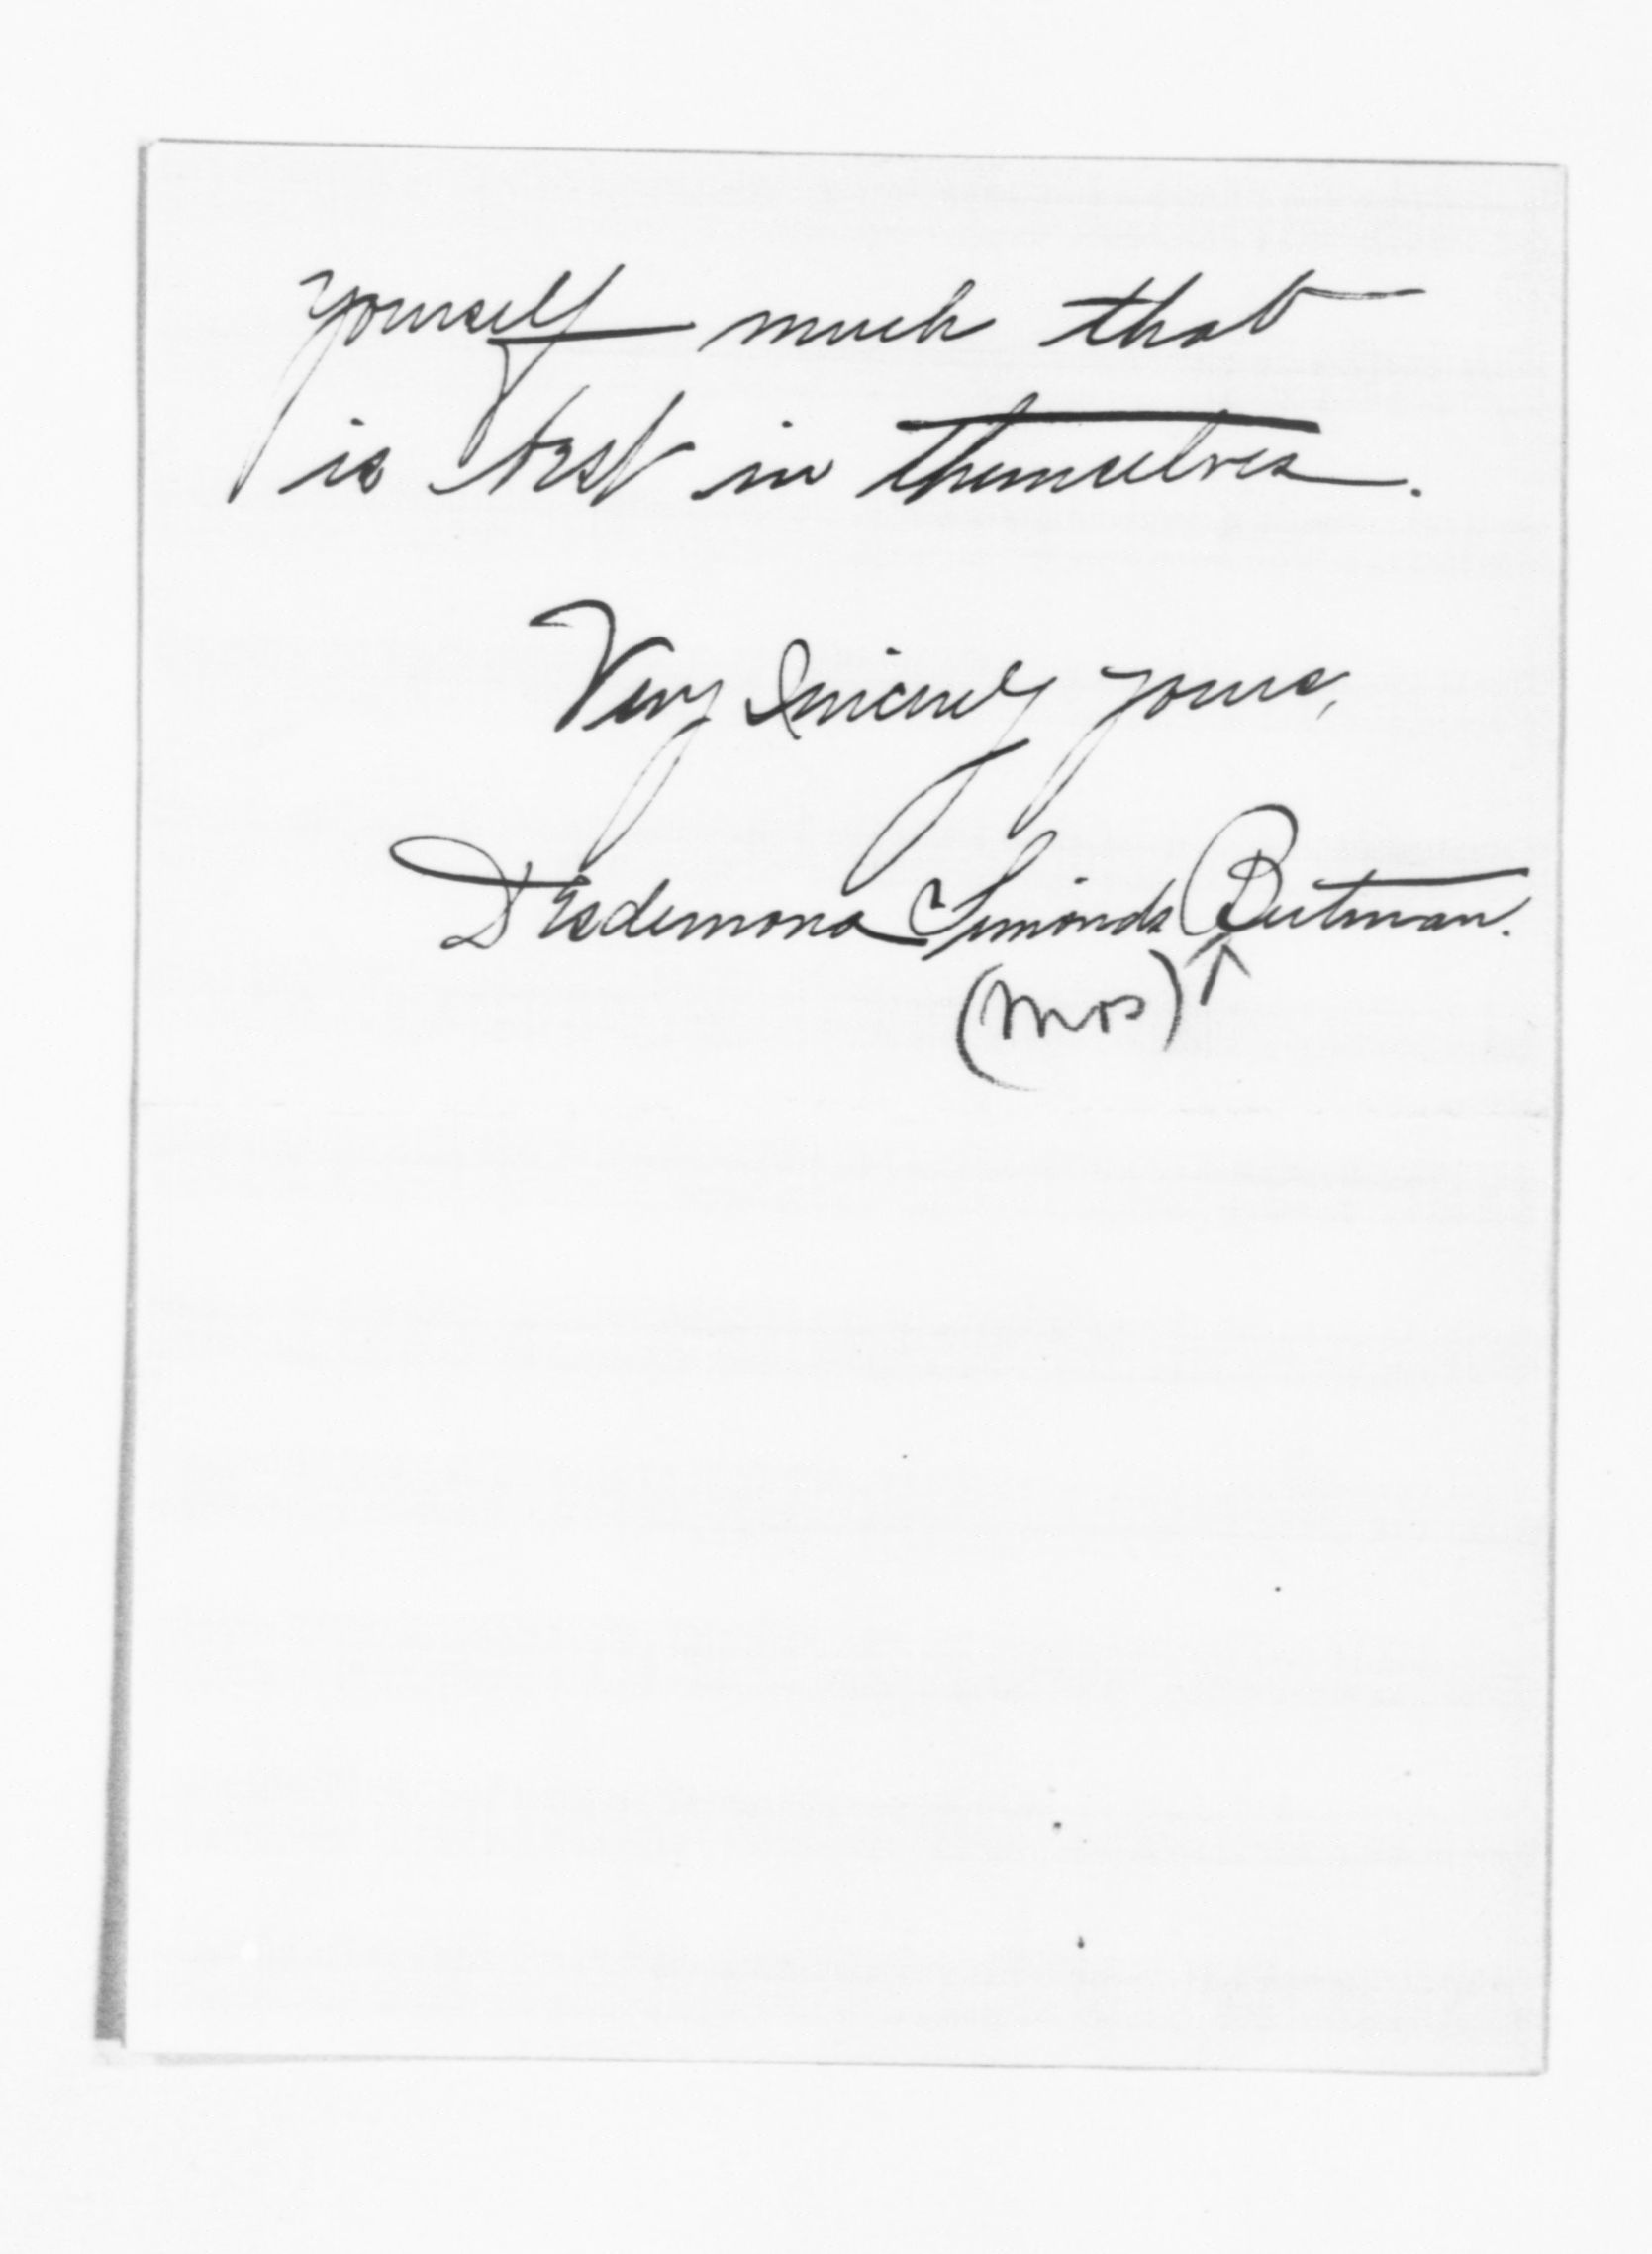 yourself much that
is best in themselves.
Very Sincerely yours,
Desdemona Simonds Butman.
(Mrs) ↑